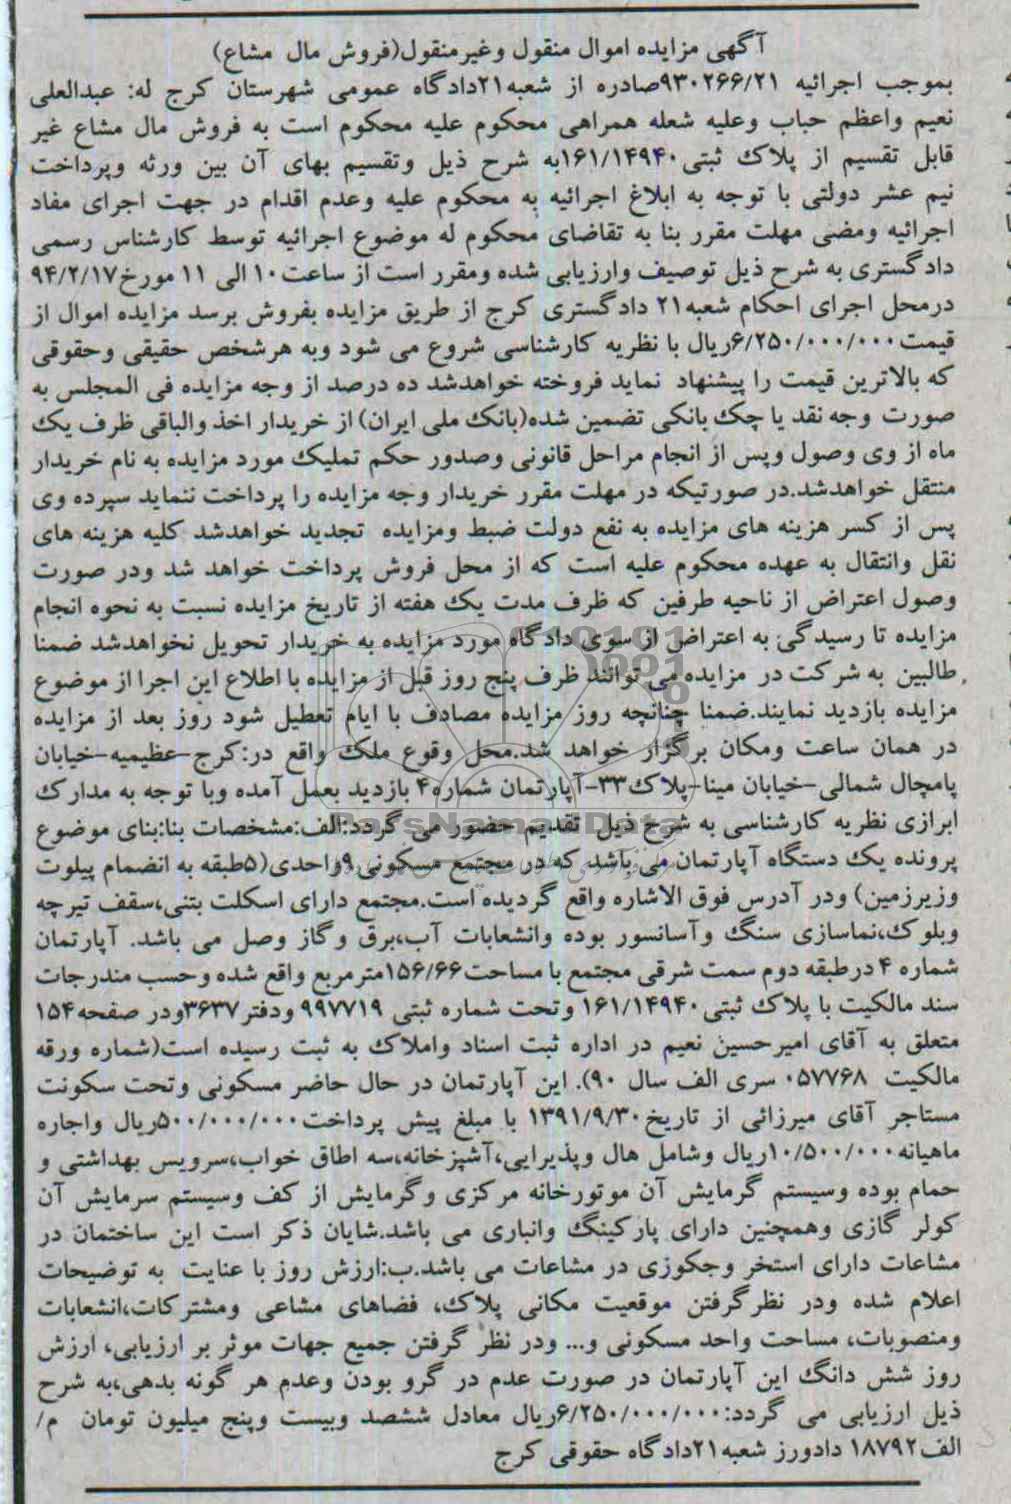 آگهی مزایده اموال منقول وغیرمنقول(فروش مال مشاع)
بموجب اجرائیه ۹۳۰۲۶۶/۲۱صادره از شعبه۲۱دادگاه عمومی شهرستان کرج له: عبدالعلی
نعیم واعظم حباب وعلیه شعله همراهی محکوم علیه محکوم است به فروش مال مشاع غیر
قابل تقسیم از پلاک ثبتی۱۶۱/۱۴۹۴۰به شرح ذیل وتقسیم بهای آن بین ورثه وپرداخت
نیم عشر دولتی با توجه به ابلاغ اجرائیه به محکوم علیه وعدم اقدام در جهت اجرای مفاد
اجرائیه ومضی مهلت مقرر بنا به تقاضای محکوم له موضوع اجرائیه توسط کارشناس رسمی
دادگستری به شرح ذیل توصیف وارزیابی شده ومقرر است از ساعت۱۰ الی ۱۱ مورخ۹۴/۲/۱۷
درمحل اجرای احکام شعبه۲۱ دادگستری کرج از طریق مزایده بفروش برسد مزایده اموال از
قیمت۶/۲۵۰/۰۰۰/۰۰۰ریال با نظریه کارشناسی شروع می شود وبه هرشخص حقیقی وحقوقی
که بالاترین قیمت را پیشنهاد نماید فروخته خواهدشد ده درصد از وجه مزایده فی المجلس به
صورت وجه نقد یا چک بانکی تضمین شده(بانک ملی ایران) از خریدار اخذ والباقی ظرف یک
ماه از وی وصول وپس از انجام مراحل قانونی وصدور حکم تملیک مورد مزایده به نام خریدار
منتقل خواهدشد.در صورتیکه در مهلت مقرر خریدار وجه مزایده را پرداخت ننماید سپرده وی
پس از کسر هزینه های مزایده به نفع دولت ضبط ومزایده تجدید خواهدشد کلیه هزینه های
نقل وانتقال به عهده محکوم علیه است که از محل فروش پرداخت خواهد شد ودر صورت
وصول اعتراض از ناحیه طرفین که ظرف مدت یک هفته از تاریخ مزایده نسبت به نحوه انجام
مزایده تا رسیدگی به اعتراض از سوی دادگاه مورد مزایده به خریدار تحویل نخواهدشد ضمنا
طالبین به شرکت در مزایده می توانند ظرف پنج روز قبل از مزایده با اطلاع این اجرا از موضوع
مزایده بازدید نمایند.ضمنا چنانچه روز مزایده مصادف با ایام تعطیل شود روز بعد از مزایده
در همان ساعت ومکان برگزار خواهد شد.محل وقوع ملک واقع در:کرج-عظیمیه-خیابان
پامچال شمالی-خیابان مینا-پلاک۳۳-آپارتمان شماره۴ بازدید بعمل آمده وبا توجه به مدارک
ابرازی نظریه کارشناسی به شرح ذیل تقدیم حضور می گردد:الف:مشخصات بنا:بنای موضوع
پرونده یک دستگاه آپارتمان می باشد که در مجتمع مسکونی ۹واحدی(۵طبقه به انضمام پیلوت
وزیرزمین) ودر آدرس فوق الاشاره واقع گردیده است.مجتمع دارای اسکلت بتنی،سقف تیرچه
وبلوک،نماسازی سنگ وآسانسور بوده وانشعابات آب،برق وگاز وصل می باشد. آپارتمان
شماره ۴ درطبقه دوم سمت شرقی مجتمع با مساحت۱۵۶/۶۶مترمربع واقع شده وحسب مندرجات
سند مالکیت با پلاک ثبتی۱۶۱/۱۴۹۴۰ وتحت شماره ثبتی ۹۹۷۷۱۹ ودفتر۳۶۳۷ودر صفحه۱۵۴
متعلق به آقای امیرحسین نعیم در اداره ثبت اسناد واملاک به ثبت رسیده است(شماره ورقه
مالکیت ۰۵۷۷۶۸ سری الف سال ۹۰). این آپارتمان در حال حاضر مسکونی وتحت سکونت
مستاجر آقای میرزائی از تاریخ۱۳۹۱/۹/۳۰ با مبلغ پیش پرداخت۵۰۰/۰۰۰/۰۰۰ریال واجاره
ماهیانه۱۰/۵۰۰/۰۰۰ریال وشامل هال وپذیرایی،آشپزخانه،سه اطاق خواب،سرویس بهداشتی و
حمام بوده وسیستم گرمایش آن موتورخانه مرکزی وگرمایش از کف وسیستم سرمایش آن
کولر گازی وهمچنین دارای پارکینگ وانباری می باشد.شایان ذکر است این ساختمان در
مشاعات دارای استخر وجکوزی در مشاعات می باشد.ب:ارزش روز با عنایت به توضیحات
اعلام شده ودر نظرگرفتن موقعیت مکانی پلاک، فضاهای مشاعی ومشترکات،انشعابات
ومنصوبات، مساحت واحد مسکونی و... ودر نظر گرفتن جمیع جهات موثر بر ارزیابی، ارزش
روز شش دانگ این آپارتمان در صورت عدم در گرو بودن وعدم هر گونه بدهی،به شرح
ذیل ارزیابی می گردد:۶/۲۵۰/۰۰۰/۰۰۰ریال معادل ششصد وبیست وپنج میلیون تومان م/
الف۱۸۷۹۲ دادورز شعبه۲۱دادگاه حقوقی کرج
ParsNamadData